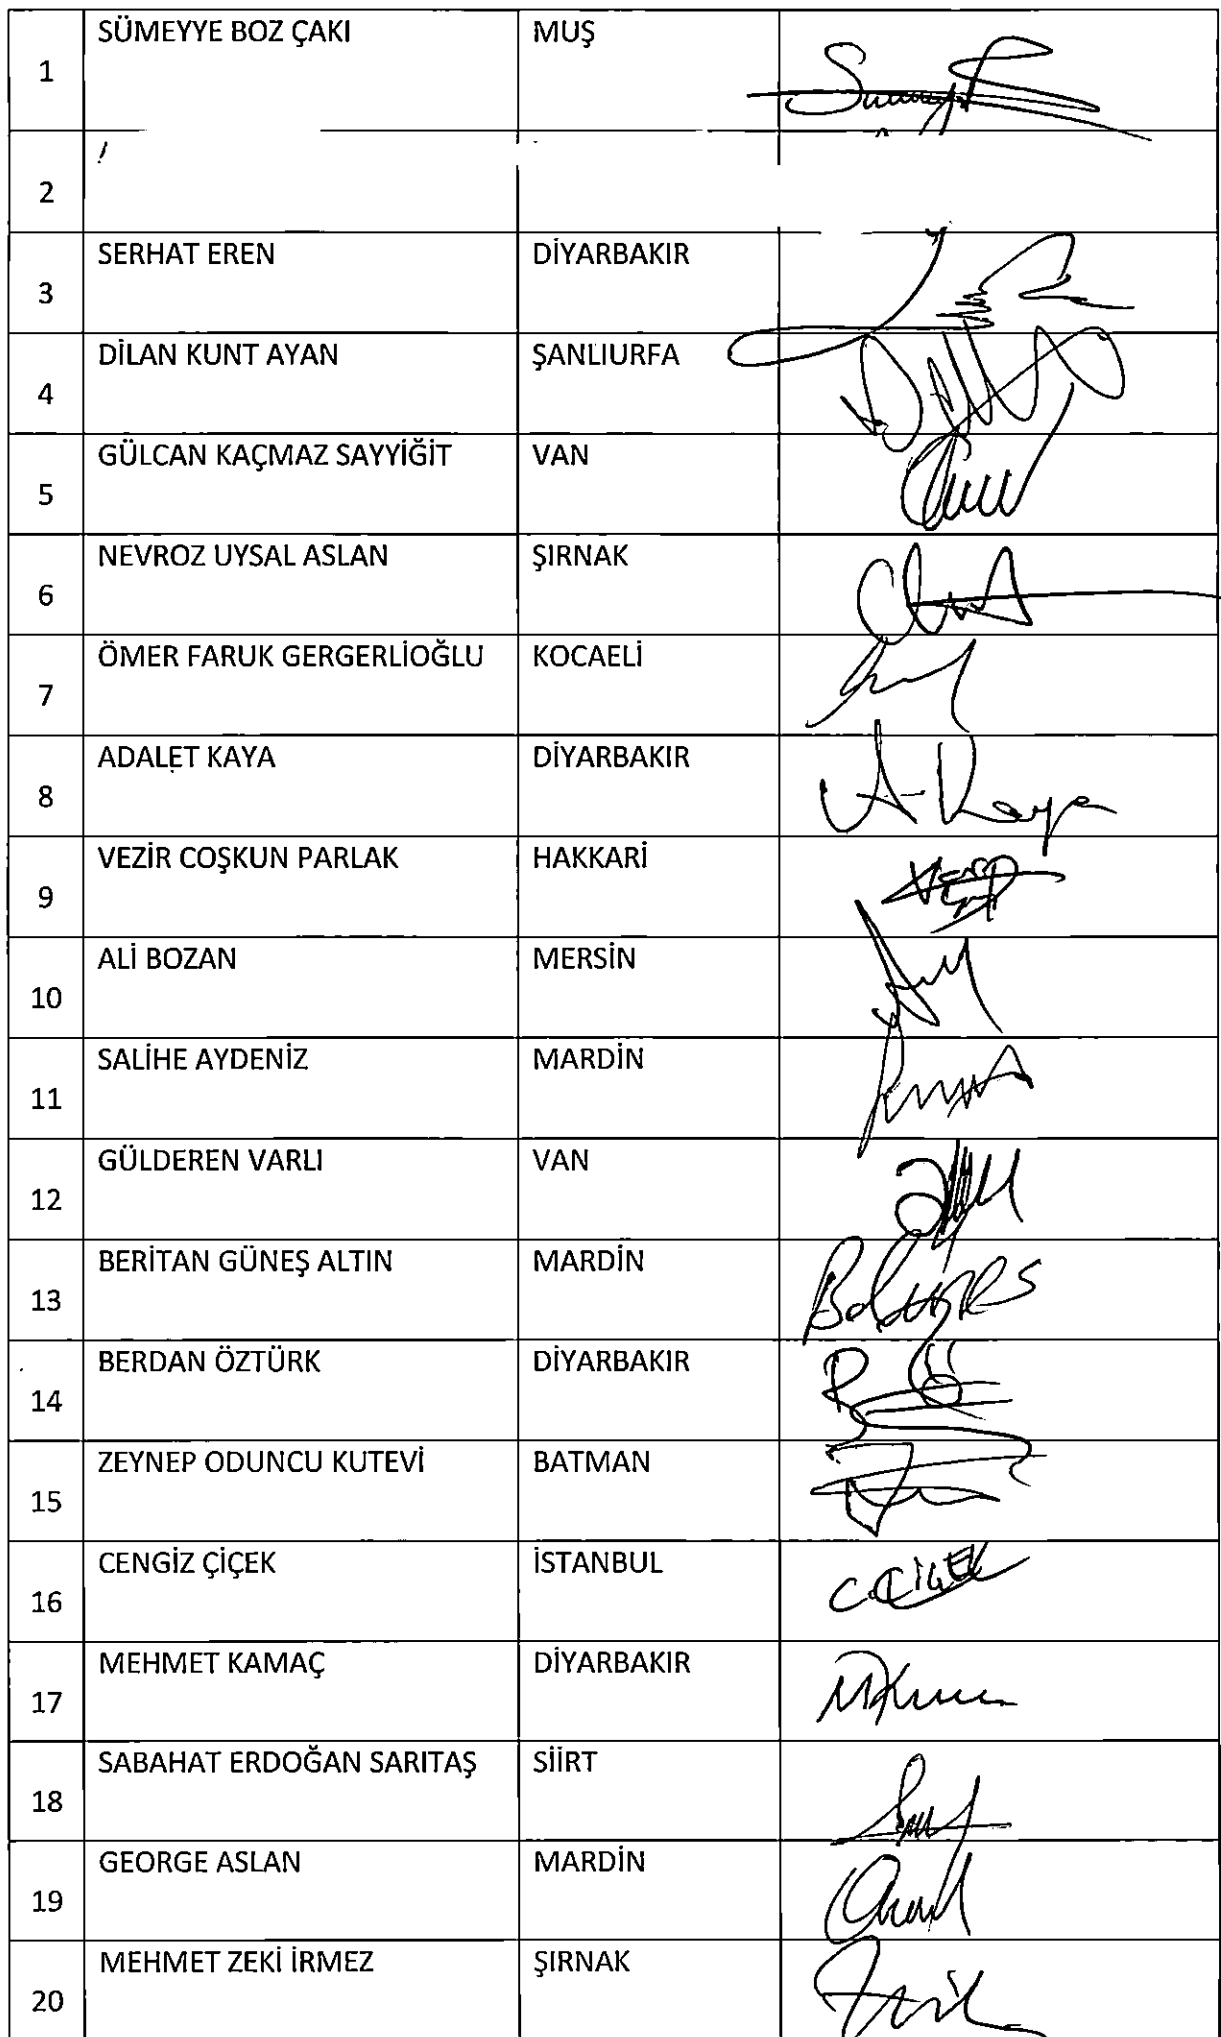 1 SÜMEYYE BOZ ÇAKI MUŞ
2
3 SERHAT EREN DİYARBAKIR
4 DİLAN KUNT AYAN ŞANLIURFA
5 GÜLCAN KAÇMAZ SAYYİĞİT VAN
6 NEVROZ UYSAL ASLAN ŞIRNAK
7 ÖMER FARUK GERGERLİOĞLU KOCAELİ
8 ADALET KAYA DİYARBAKIR A Kaya
9 VEZİR COŞKUN PARLAK HAKKARİ
10 ALİ BOZAN MERSİN
11 SALİHE AYDENİZ MARDİN
12 GÜLDEREN VARLI VAN
13 BERİTAN GÜNEŞ ALTIN MARDİN
14 BERDAN ÖZTÜRK DİYARBAKIR
15 ZEYNEP ODUNCU KUTEVİ BATMAN
16 CENGİZ ÇİÇEK İSTANBUL C.ÇİÇEK
17 MEHMET KAMAÇ DİYARBAKIR
18 SABAHAT ERDOĞAN SARITAŞ SİİRT
19 GEORGE ASLAN MARDİN
20 MEHMET ZEKİ İRMEZ ŞIRNAK